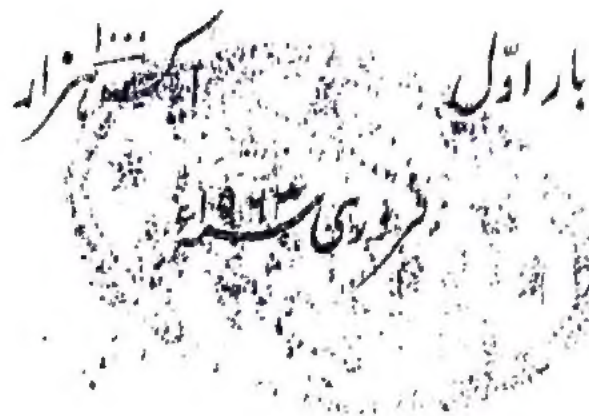 بار اوّل ایک ہزار ۱۰۰۰
فروری ۱۹۶۳ء